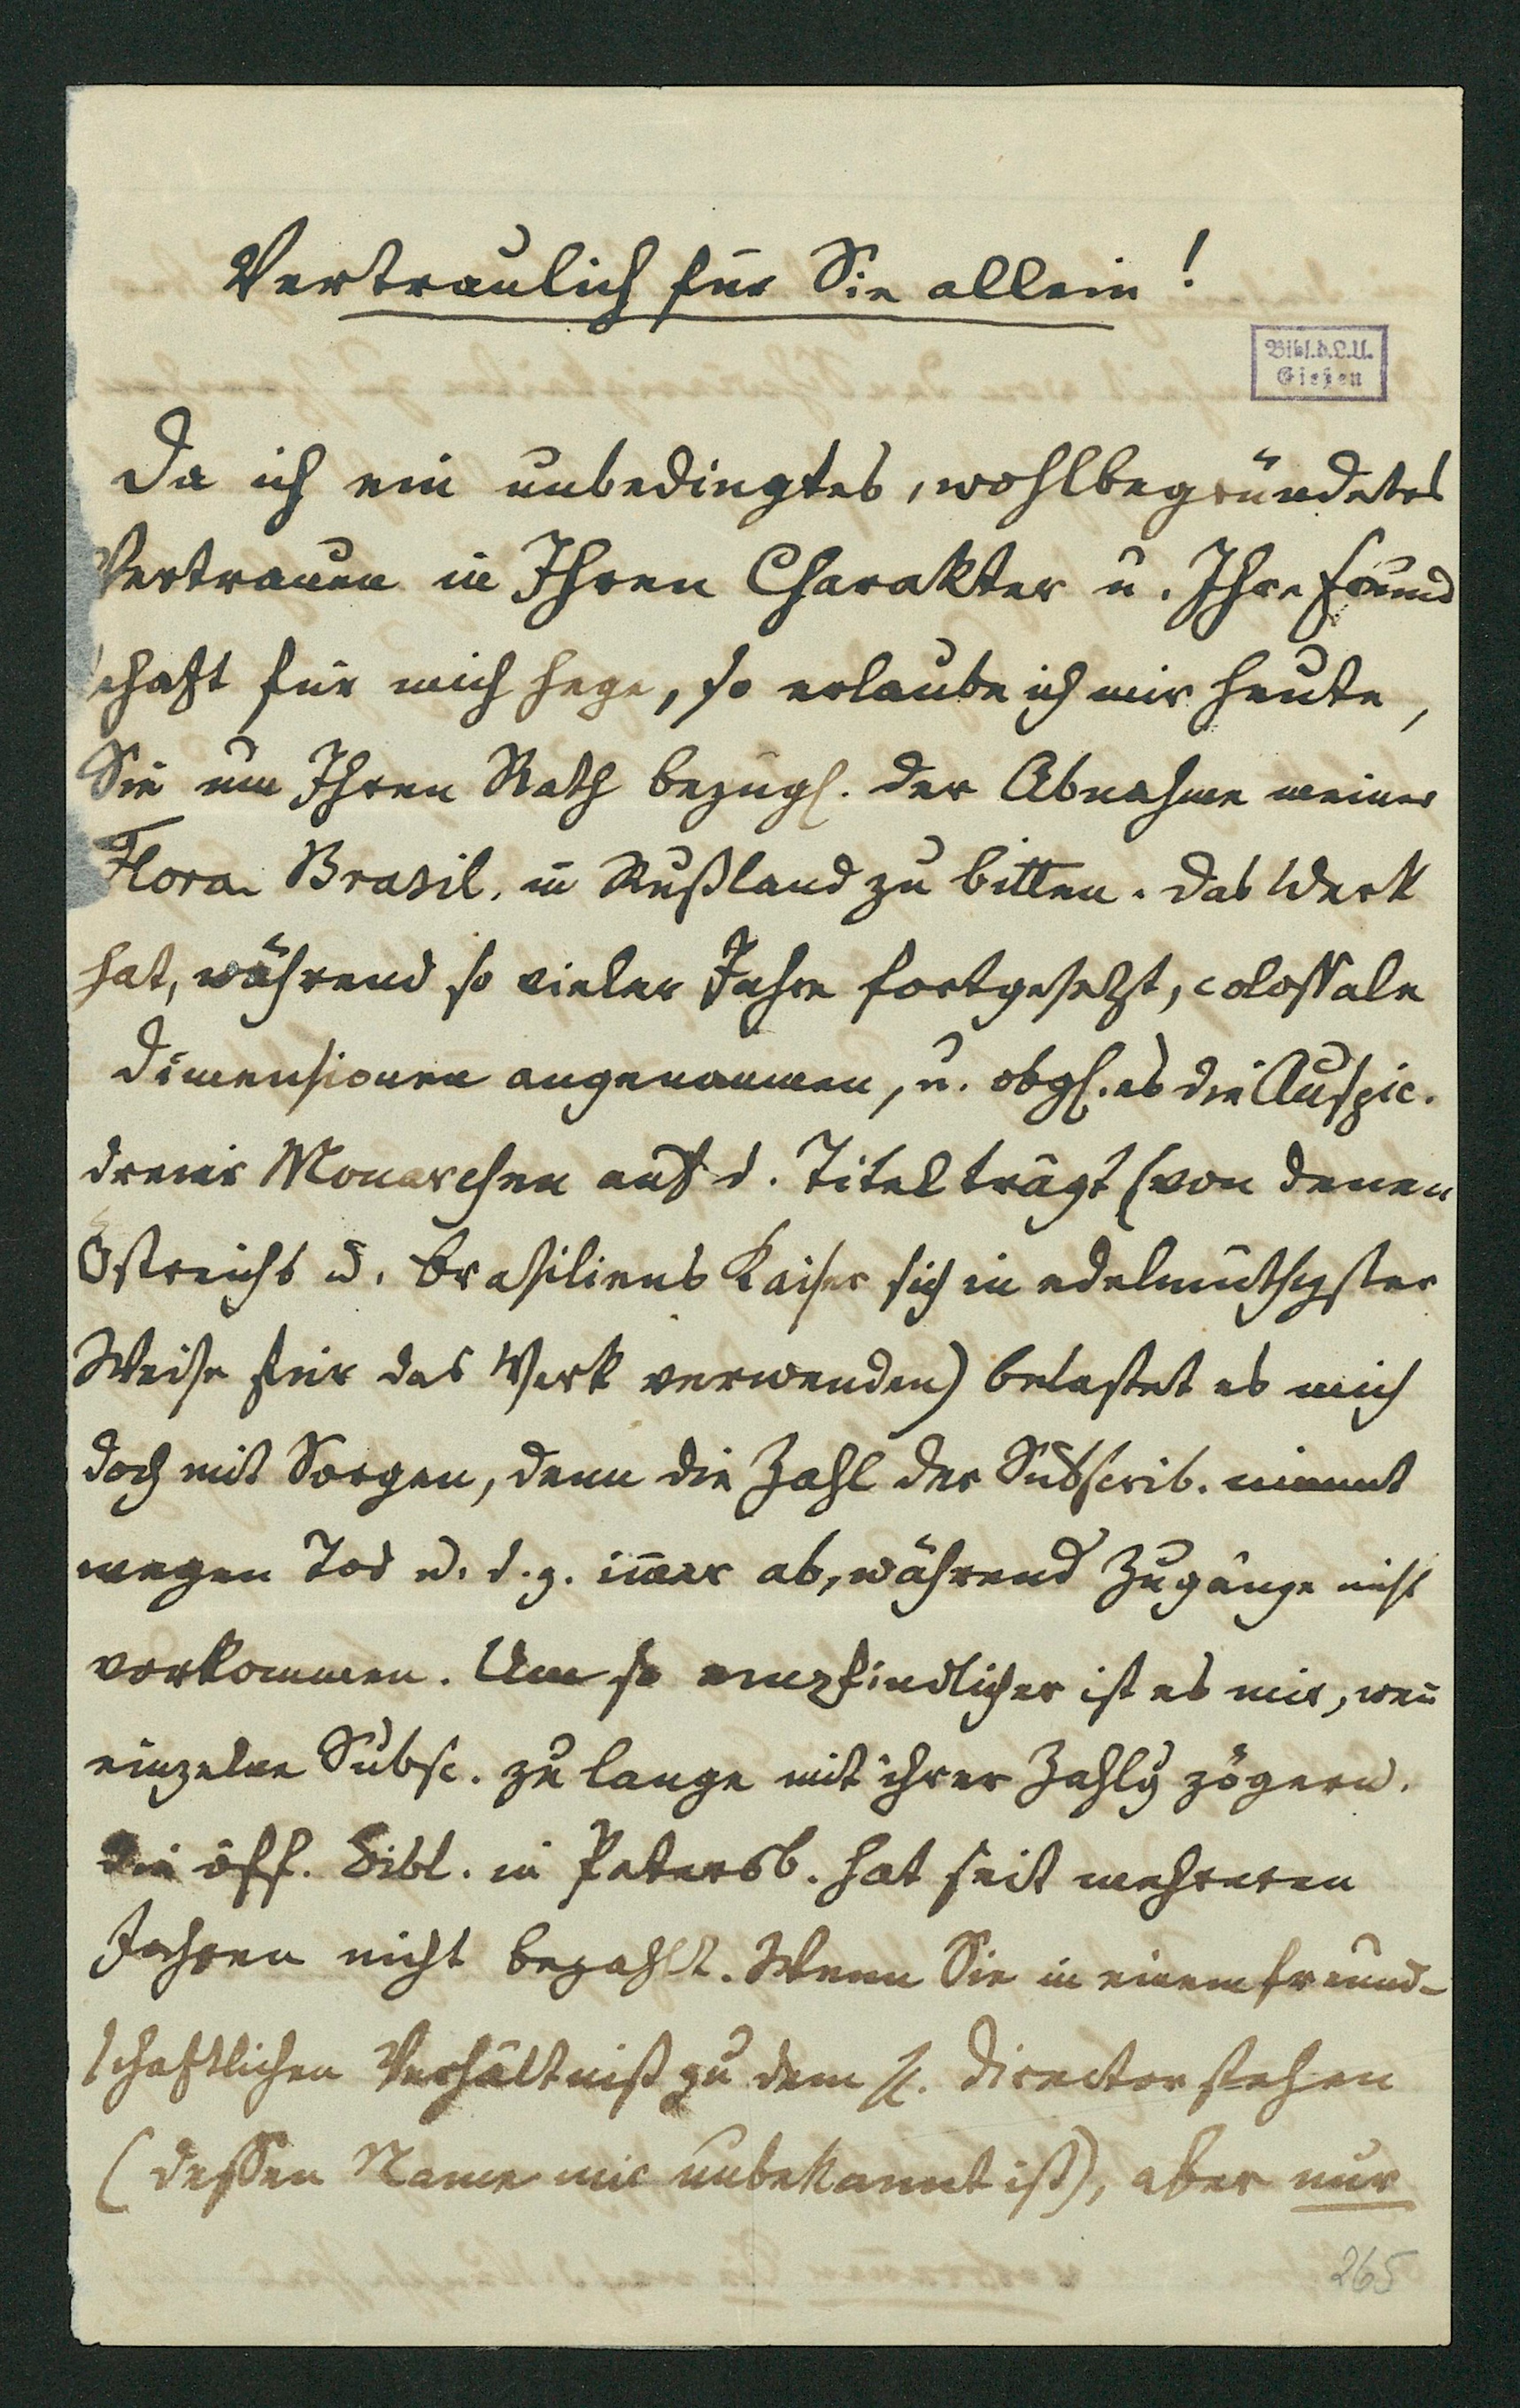 Vertraulich für Sie allein!
Bibl. d. L. U.
Gießen
Da ich ein unbedingtes, wohlbegründetes
Vertrauen in Ihren Charakter u. Ihre Freund
schaft für mich hege, so erlaube ich mir heute,
Sie um Ihren Rath bezügl. der Abnahme meiner
Flora Brasil. in Rußland zu bitten. Das Werk
hat, während so vieler Jahre fortgesetzt, colossale
Dimensionen angenommen, u. obgl. es die Auspic.
dreier Monarchen auf d. Titel trägt (von denen
Östreichs u. Brasiliens Kaiser sich in edelmüthigster
Weise für das Werk verwenden) belastet es mich
doch mit Sorgen, denn die Zahl der Subscrib. nimmt
wegen Tod u. d. g. immer ab, während Zugänge nicht
vorkommen. Um so empfindlicher ist es mir, wen̄
einzelne Subsc. zu lange mit ihrer Zahlg zögern.
Die öff. Bibl. in Petersb. hat seit mehreren
Jahren nicht bezahlt. Wenn Sie in einem freund-
schaftlichen Verhältniß zu dem H. Director stehen
(dessen Name mir unbekannt ist), aber nur
265